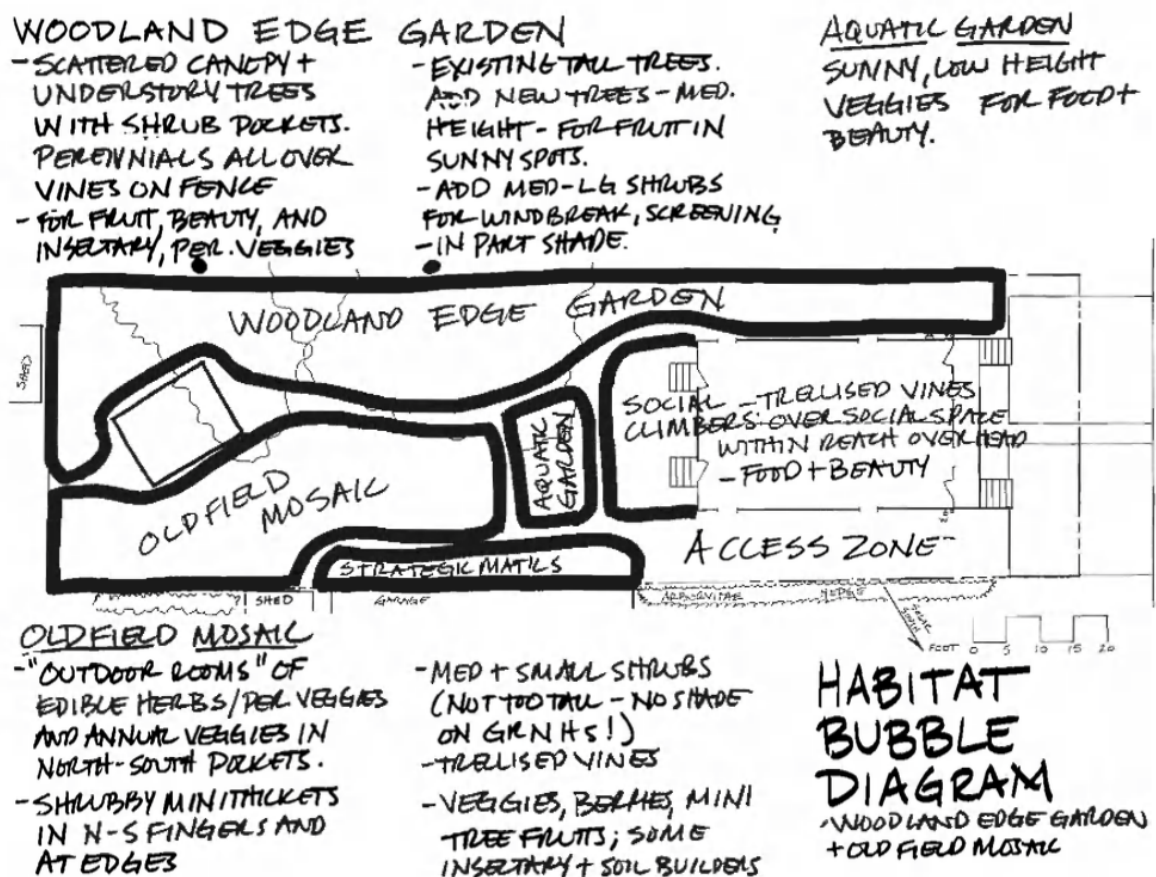 WOODLAND EDGE GARDEN
- SCATTERED CANOPY +
UNDERSTORY TREES
WITH SHRUB POCKETS.
PERENNIALS ALL OVER
VINES ON FENCE
- FOR FRUIT, BEAUTY, AND
INSECTARY, PER. VEGGIES
- EXISTING TALL TREES.
ADD NEW TREES - MED.
HEIGHT - FOR FRUIT IN
SUNNY SPOTS.
- ADD MED-LG SHRUBS
FOR WINDBREAK, SCREENING
- IN PART SHADE.
AQUATIC GARDEN
SUNNY, LOW HEIGHT
VEGGIES FOR FOOD +
BEAUTY.
WOODLAND EDGE GARDEN
SHED
SOCIAL - TRELLISED VINES
CLIMBERS: OVER SOCIAL SPACE
WITHIN REACH OVERHEAD
- FOOD + BEAUTY
AQUATIC
GARDEN
OLDFIELD
MOSAIC
ACCESS ZONE
STRATEGIC MATILS
SHED
GARAGE
ARBORVITAE HEDGE
SOLAR
SOUTH
FOOT 0 5 10 15 20
OLDFIELD MOSAIC
- "OUTDOOR ROOMS" OF
EDIBLE HERBS/PER VEGGIES
AND ANNUAL VEGGIES IN
NORTH-SOUTH POCKETS.
- SHRUBBY MINITHICKETS
IN N-S FINGERS AND
AT EDGES
- MED + SMALL SHRUBS
(NOT TOO TALL - NO SHADE
ON GRNHS!)
- TRELLISED VINES
- VEGGIES, BERRIES, MINI
TREE FRUITS; SOME
INSECTARY + SOIL BUILDERS
HABITAT
BUBBLE
DIAGRAM
- WOODLAND EDGE GARDEN
+ OLD FIELD MOSAIC